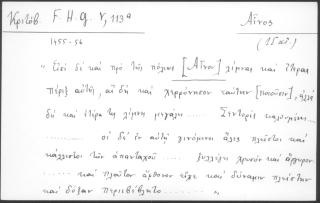 Κριτόβ. F. H. G. V, 113ᵃ Αἶνος
1455-56 (15 αἰ.)
"Εἰσὶ δὲ καὶ πρὸ τῆς πόλεως [Αἴνου] λίμναι καὶ ἕτεραι
πέριξ αὐτῆς, αἳ δὴ καὶ χερρόνησον ταύτην [ποιοῦσιν],
δὲ καὶ ἑτέρα τις λίμνη μεγάλη ..... Στεντορὶς καλουμένη ...
...... οἱ δὲ ἐν αὐτῇ γινόμενοι ἅλες πλεῖστοι καὶ
κάλλιστοι τῶν ἁπανταχοῦ ...... χρυσὸν καὶ ἄργυρον
...... καὶ πλοῦτον ἄφθονον εἶχε καὶ δύναμιν πλείστην
καὶ δόξαν περιεβέβλητο ......... "